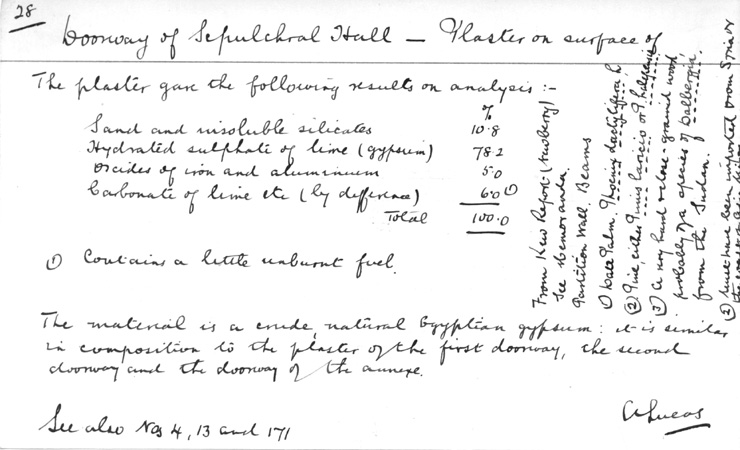 28
Doorway of Sepulchral Hall — Plaster on surface of
The plaster gave the following results on analysis :-
%
Sand and insoluble silicates 10.8
Hydrated sulphate of lime (gypsum) 78.2
Oxides of iron and aluminium 5.0
Carbonate of lime etc (by difference) 6.0 (1)
Total 100.0
(1) Contains a little unburnt fuel.
The material is a crude, natural Egyptian gypsum: it is similar
in composition to the plaster of the first doorway, the second
doorway and the doorway of the annexe.
A Lucas
See also Nos 4, 13 and 171
From Kew Report (Newberry)
See Memoranda
Partition Wall Beams
(1) Date Palm. Phoenix dactylifera L
(2) Pine, either Pinus laricio or P. halepensis
(3) A very hard & close-grained wood,
probably of a species of Dalbergia,
from the Sudan.
(2) must have been imported from Syria or